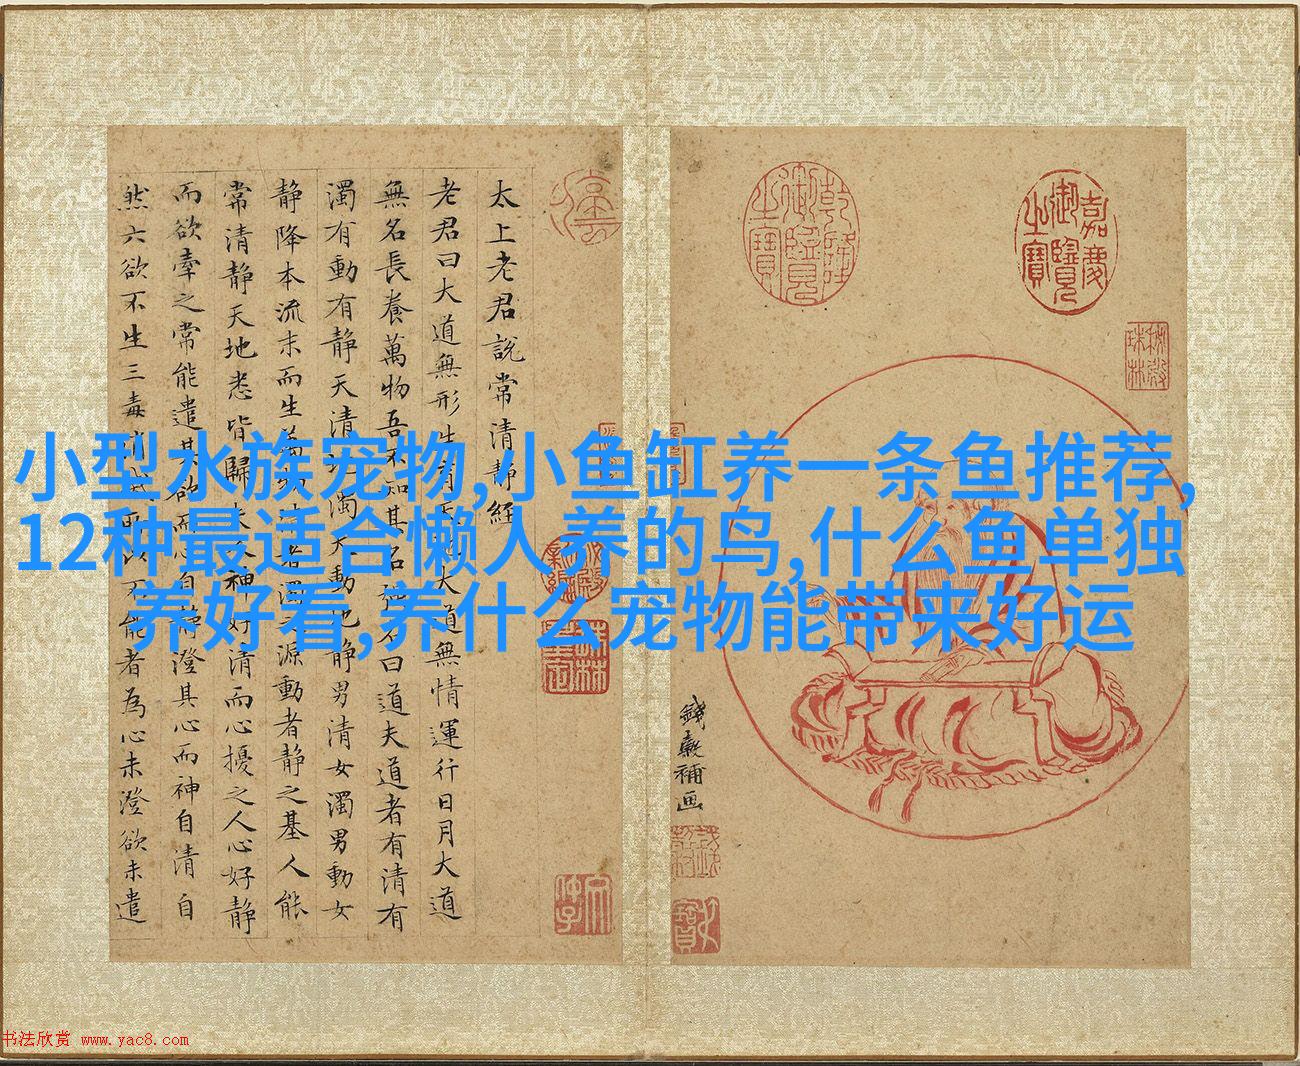 小型水族宠物,小鱼缸养一条鱼推荐,
12种最适合懒人养的鸟,什么鱼单独
养好看,养什么宠物能带来好运
太上老君說常清静經
老君曰大道無形生
大道無情運行日月大道
無名長養萬物吾不知其名
曰道夫道者有清有
濁有動有静天清地濁天動地静男清女濁男動女
静降本流末而生
源動者静之基人能
常清静天地悉皆歸
神好清而心擾之人心好静
而欲牽之常能遣其欲而心自静澄其心而神自清自
然六欲不生三毒消
能者為心未澄欲未遣
乾隆御覽之寶
嘉慶御覽之寶
錢穀補画
书法欣赏 www.yac8.com